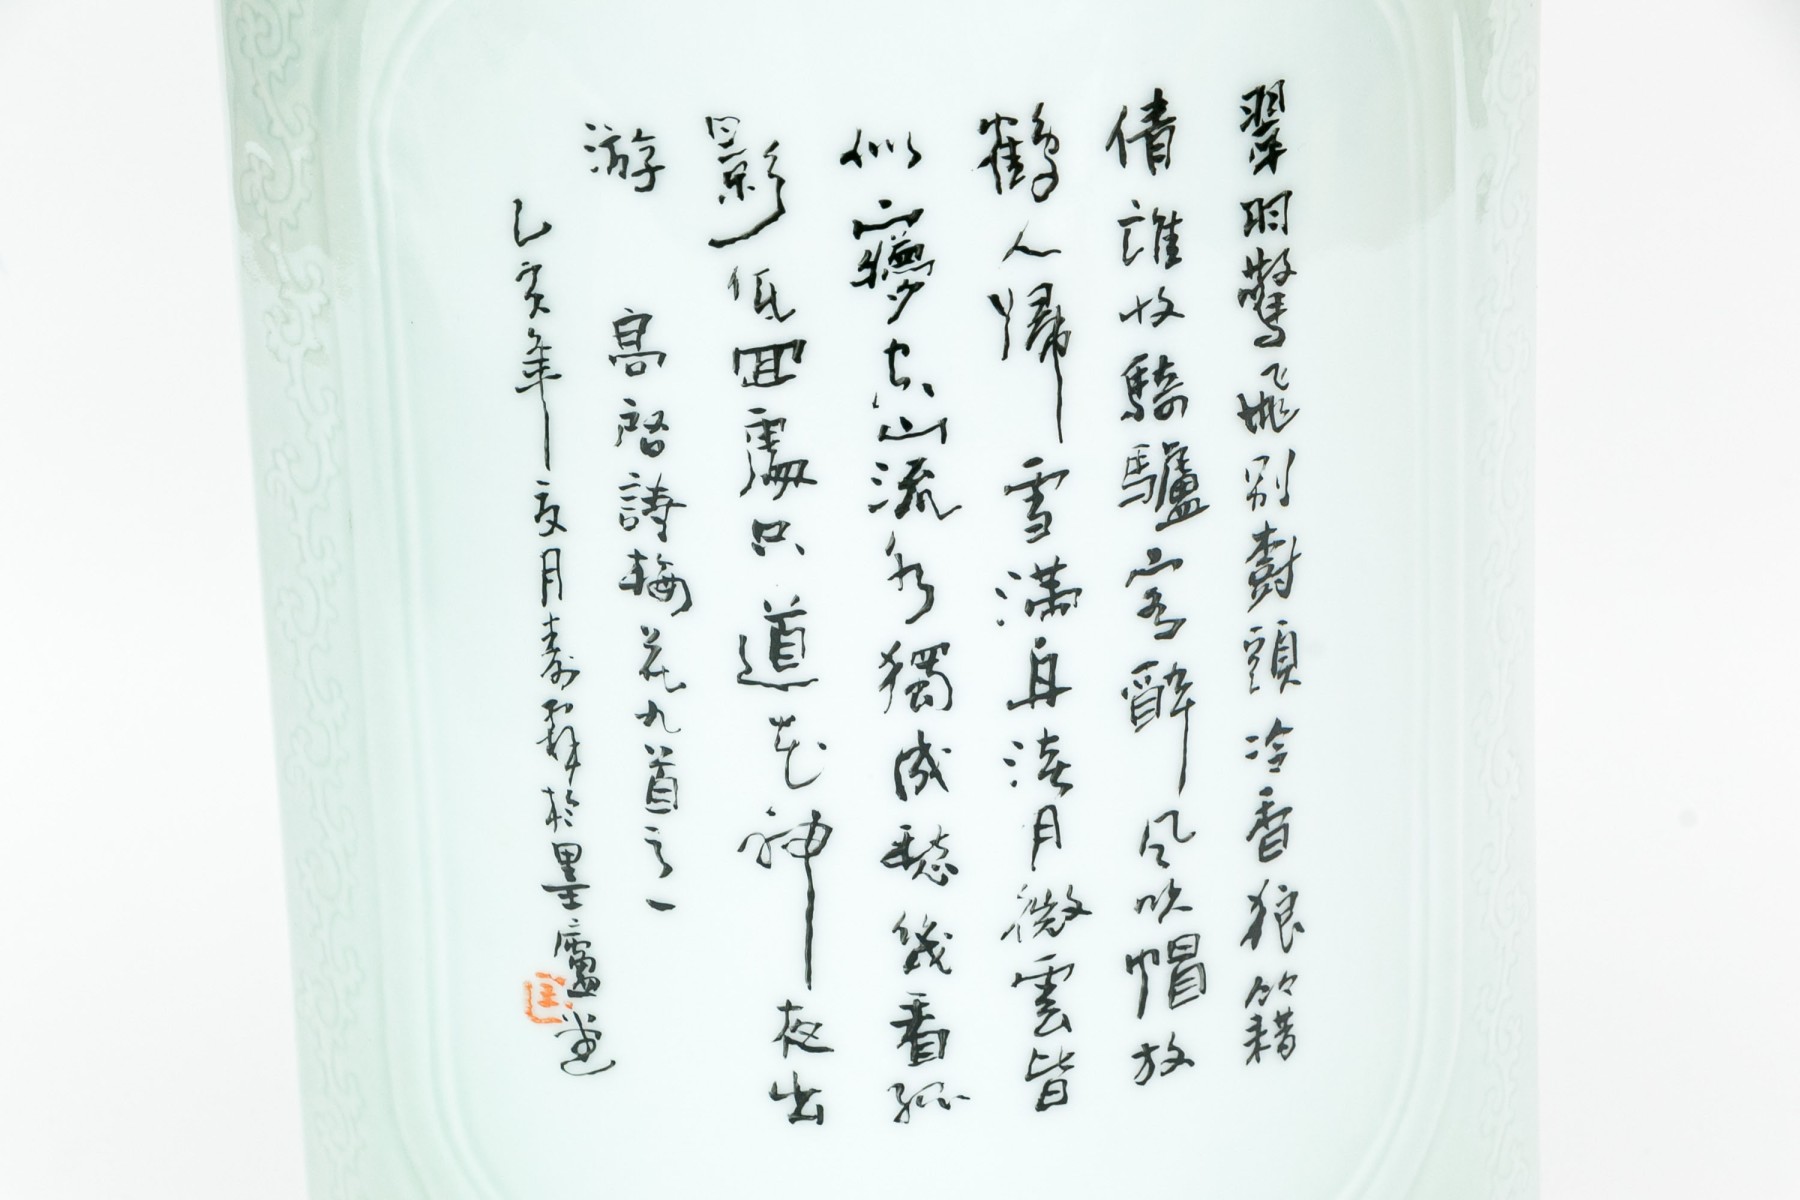 翠羽驚飛別樹頭冷香狼籍
倩誰收騎驢客醉風吹帽放
鶴人歸雪滿舟淡月微雲皆
似夢空山流水獨成愁幾看孤
影低回處只道花神夜出
游 高啓詩梅花九首之一
乙亥年夏月於墨廬堂